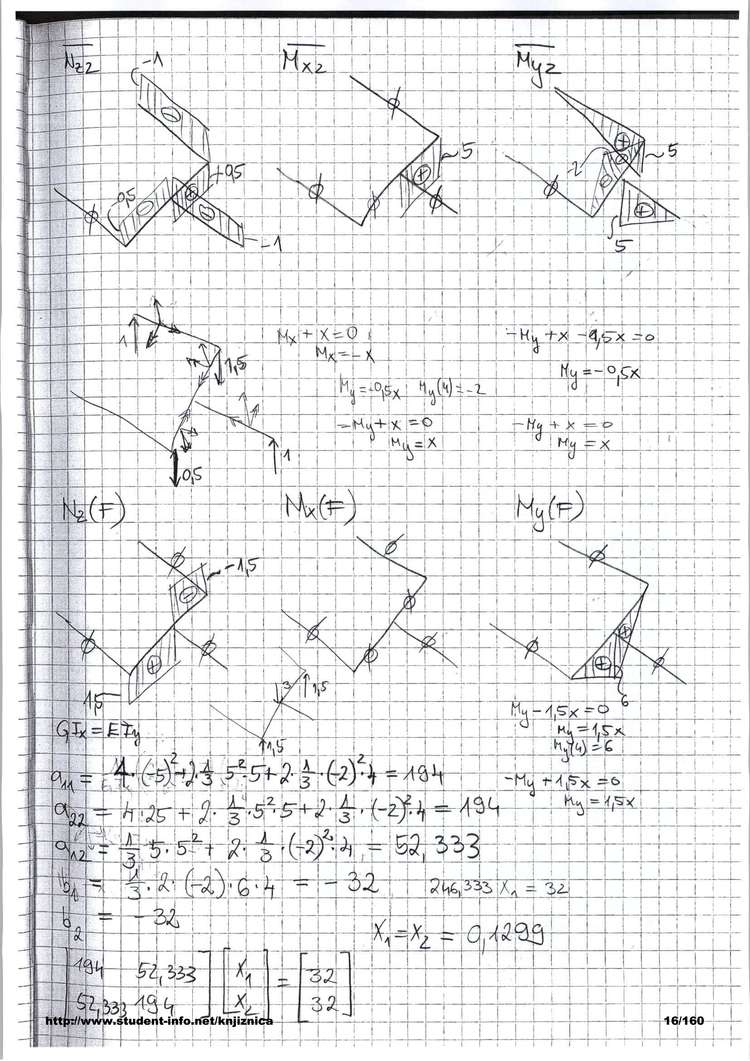 Nz2 Mx2 My2
-1
0,5 0,5 5 -2 5
∅ ∅ ∅ ∅ ∅ ∅
-1 5
1 1,5
Mx + x = 0
Mx = -x
-My + x - 1,5x = 0
My = -0,5x
My = -0,5x My(4) = -2
-My + x = 0
My = x
-My + x = 0
My = x
0,5 1
Nz(F) Mx(F) My(F)
-1,5
∅ ∅ ∅ ∅ ∅ ∅ ∅ ∅ ∅ ∅ ∅
1,5 3 1,5 1,5 6
My - 1,5x = 0
My = 1,5x
My(4) = 6
-My + 1,5x = 0
My = 1,5x
GIx = EIy
a11 = 4·(-5)² + 2·1/3·5²·5 + 2·1/3·(-2)²·4 = 194
a22 = 4·25 + 2·1/3·5²·5 + 2·1/3·(-2)²·4 = 194
a12 = 1/3·5·5² + 2·1/3·(-2)²·4 = 52,333
b1 = 1/3·2·(-2)·6·4 = -32 246,333 X1 = 32
b2 = -32
X1 = X2 = 0,1299
[194 52,333] [X1] = [32]
[52,333 194] [X2] [32]
http://www.student-info.net/knjiznica 16/160